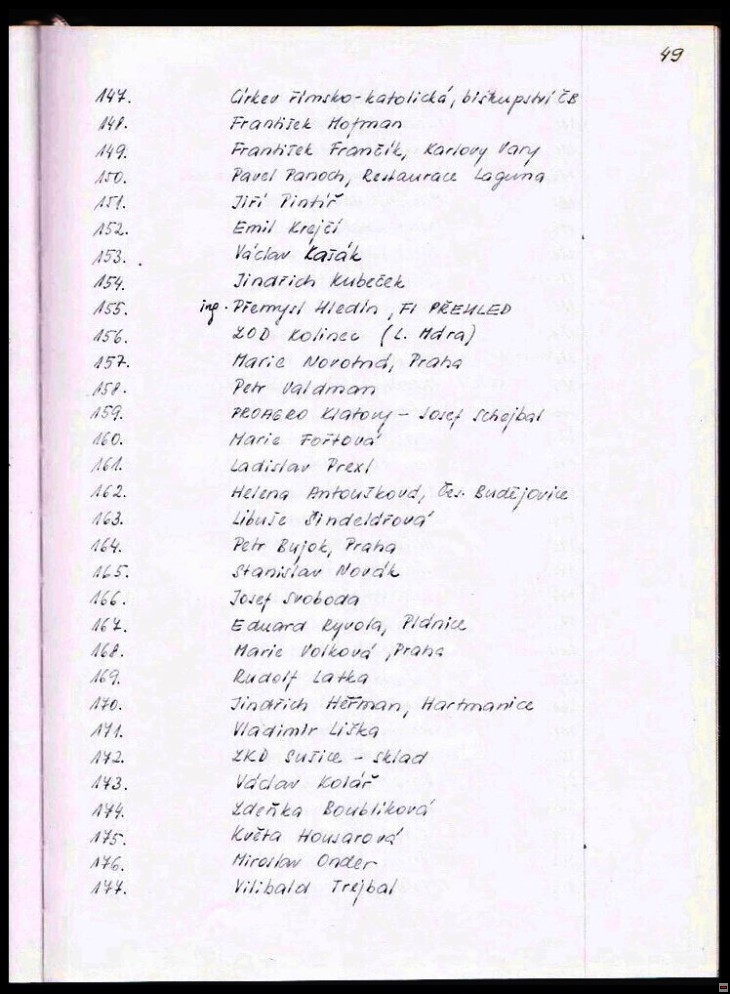 49
147. Církev římsko-katolická, biskupství ČB
148. František Hofman
149. František Frančík, Karlovy Vary
150. Pavel Panoch, Restaurace Laguna
151. Jiří Pintíř
152. Emil Krejčí
153. Václav Kašák
154. Jindřich Kubeček
155. ing. Přemysl Hledín, FI PŘEHLED
156. ZOD Kolinec (L. Mdra)
157. Marie Novotná, Praha
158. Petr Valdman
159. PROAGRO Klatovy - Josef Schejbal
160. Marie Fořtová
161. Ladislav Prexl
162. Helena Antoušková, Čes. Budějovice
163. Libuše Šindelářová
164. Petr Bujok, Praha
165. Stanislav Novák
166. Josef Svoboda
167. Eduard Ryvola, Plánice
168. Marie Volková, Praha
169. Rudolf Latka
170. Jindřich Heřman, Hartmanice
171. Vladimír Liška
172. ZKD Sušice - sklad
173. Václav Kolář
174. Zdeňka Boublíková
175. Květa Housarová
176. Miroslav Onder
177. Vilibald Trejbal